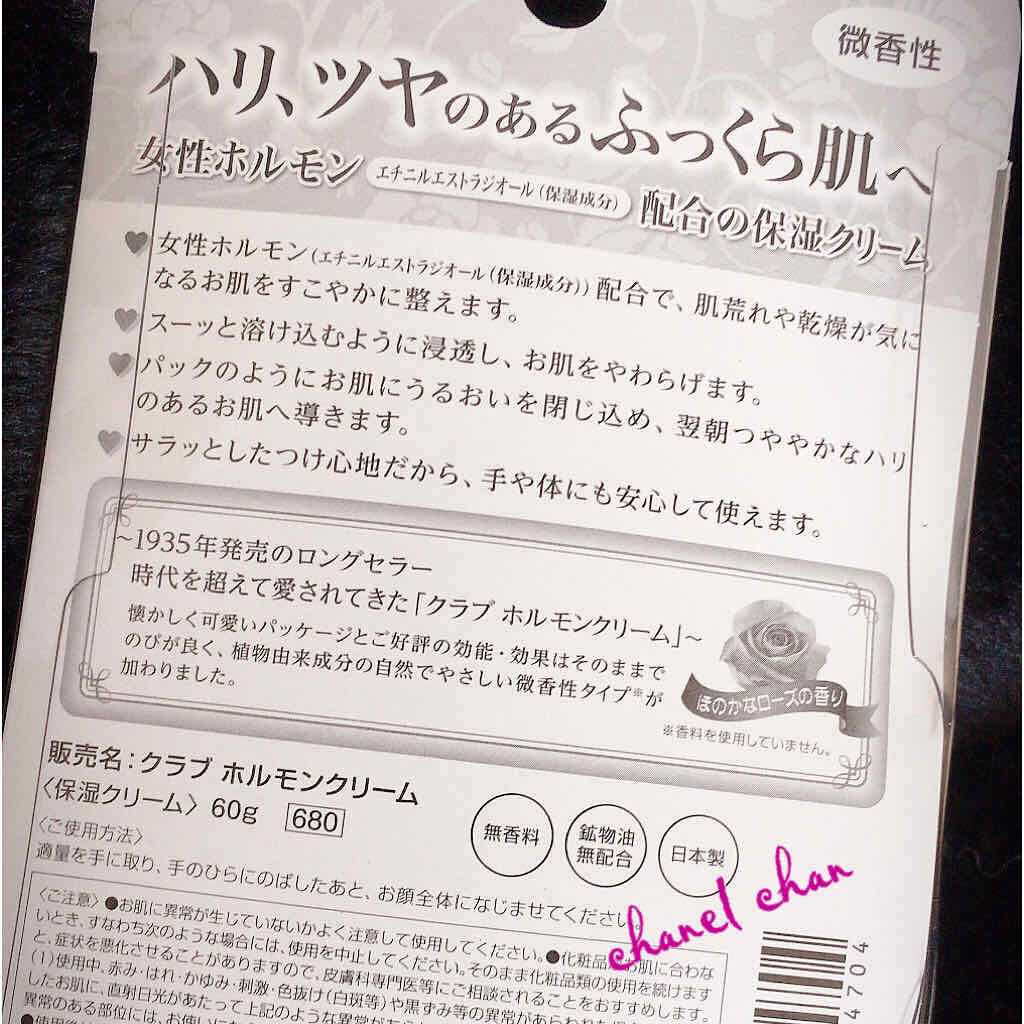 微香性
ハリ、ツヤのあるふっくら肌へ
女性ホルモン エチニルエストラジオール(保湿成分) 配合の保湿クリーム
女性ホルモン(エチニルエストラジオール(保湿成分))配合で、肌荒れや乾燥が気に
なるお肌をすこやかに整えます。
スーッと溶け込むように浸透し、お肌をやわらげます。
パックのようにお肌にうるおいを閉じ込め、翌朝つややかなハリ
のあるお肌へ導きます。
サラッとしたつけ心地だから、手や体にも安心して使えます。
~1935年発売のロングセラー
時代を超えて愛されてきた「クラブ ホルモンクリーム」~
懐かしく可愛いパッケージとご好評の効能・効果はそのままで
のびが良く、植物由来成分の自然でやさしい微香性タイプ※が
加わりました。
ほのかなローズの香り
※香料を使用していません。
販売名:クラブ ホルモンクリーム
〈保湿クリーム〉 60g 680
無香料
鉱物油
無配合
日本製
〈ご使用方法〉
適量を手に取り、手のひらにのばしたあと、お顔全体になじませてください。
chanel chan
〈ご注意〉●お肌に異常が生じていないかよく注意して使用してください。●化粧品がお肌に合わな
いとき、すなわち次のような場合には、使用を中止してください。そのまま化粧品類の使用を続けます
と、症状を悪化させることがありますので、皮膚科専門医等にご相談されることをおすすめします。
(1)使用中、赤み・はれ・かゆみ・刺激・色抜け(白斑等)や黒ずみ等の異常があらわれた場合
したお肌に、直射日光があたって上記のような異常が
異常のある部位には、お使いに
4704